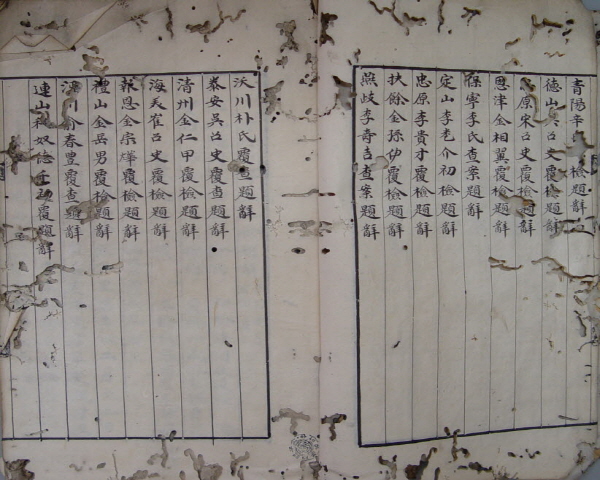 青陽辛檢題辭
德山召史覆檢題辭
原宋召史覆檢題辭
恩津金相翼覆檢題辭
保寧李氏查案題辭
定山李老介初檢題辭
忠原李貴才覆檢題辭
扶餘金孫伊覆檢題辭
燕歧李奇吉查案題辭
沃川朴氏覆查題辭
泰安吳召史覆查題辭
清州金仁甲覆檢題辭
海美崔召史覆檢題辭
報恩金宗燁覆檢題辭
禮山金岳男覆檢題辭
川俞春豊覆查題辭
連山奴德覆題辭